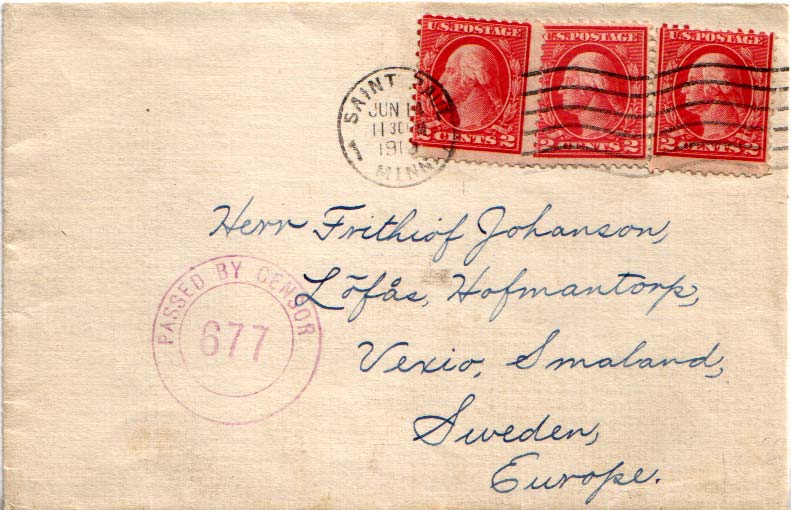 U.S. POSTAGE U.S. POSTAGE U.S. POSTAGE
2 CENTS 2 2 CENTS 2 2 CENTS 2
SAINT PAUL
JUN
11 30
MINN
1
Herr Frithiof Johanson,
Löfås, Hofmantorp,
Vexio, Smaland,
Sweden,
Europe.
PASSED BY CENSOR
677